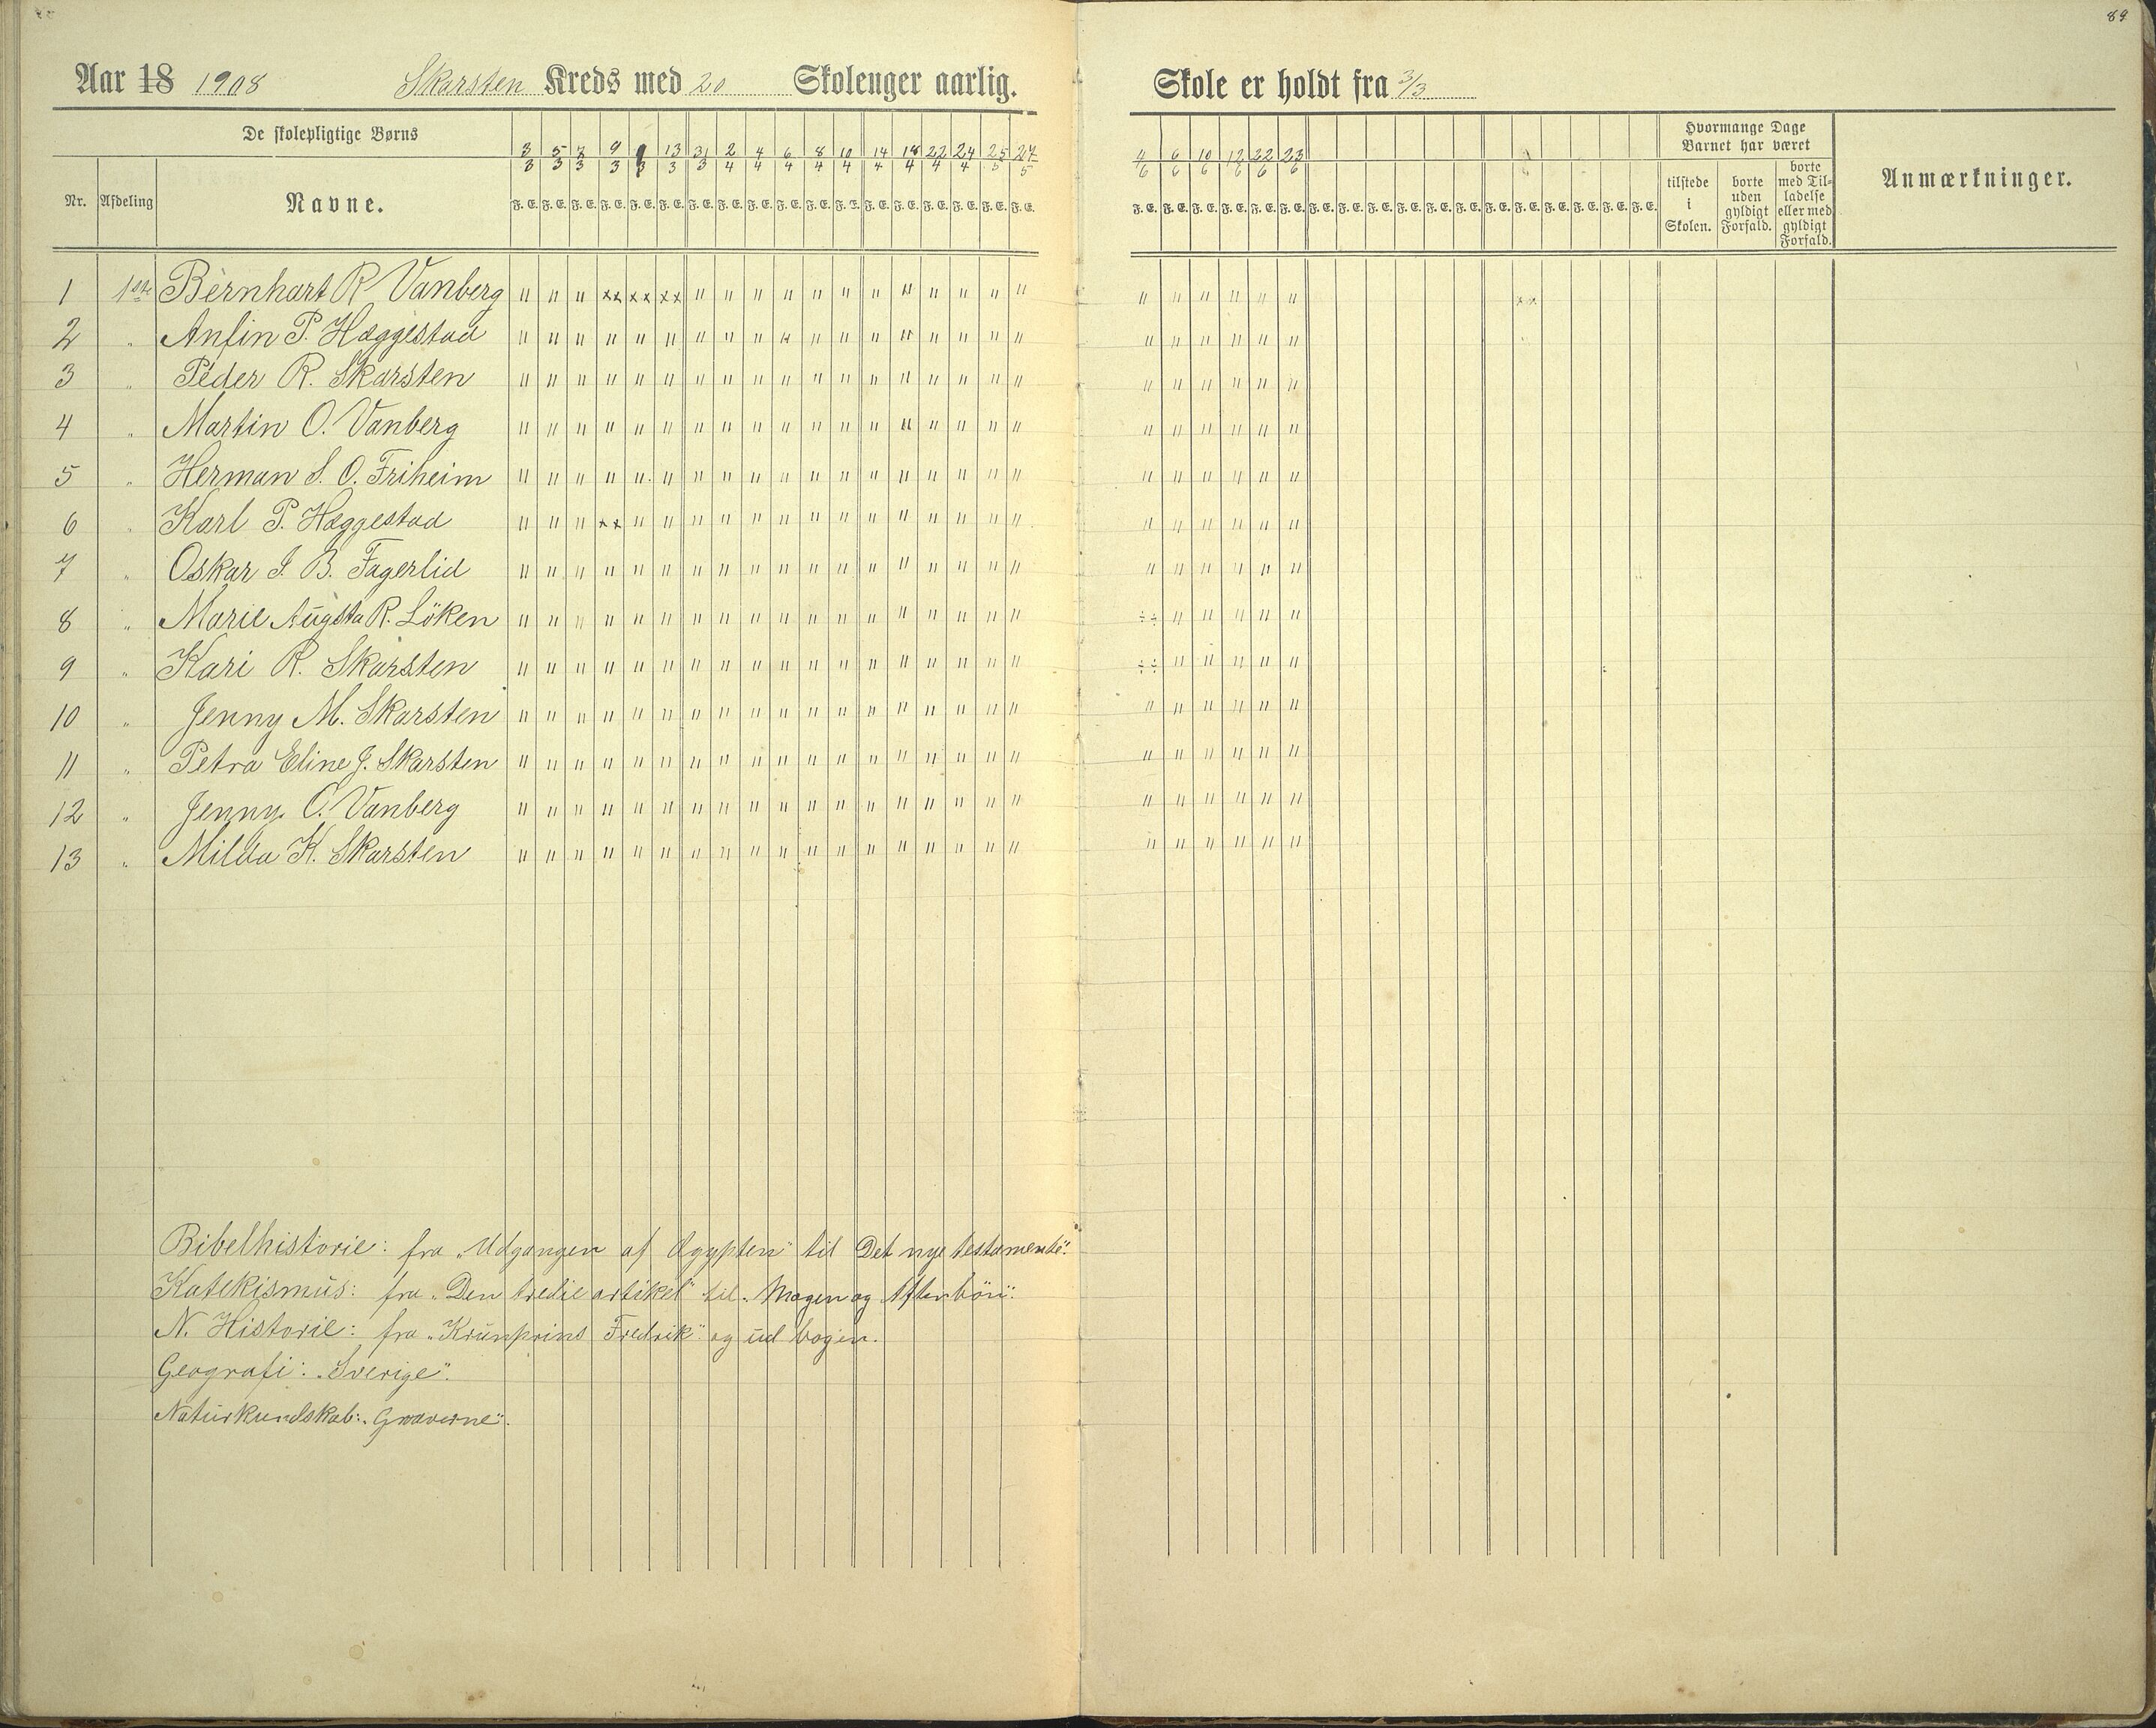 89
Aar 18 1908 Skarsten Kreds med 20 Skoleuger aarlig. Skole er holdt fra 3/3
De skolepligtige Børns
Nr. Afdeling Navne.
3/3 5/3 7/3 9/3 13/3 31/3 2/4 4/4 6/4 8/4 10/4 14/4 18/4 22/4 24/4 25/5 27/5
F. E. F. E. F. E. F. E. F. E. F. E. F. E. F. E. F. E. F. E. F. E. F. E. F. E. F. E. F. E. F. E. F. E. F. E.
4/6 6/6 10/6 12/6 22/6 23/6
F. E. F. E. F. E. F. E. F. E. F. E. F. E. F. E. F. E. F. E. F. E. F. E. F. E. F. E. F. E. F. E. F. E. F. E.
Hvormange Dage
Barnet har været
tilstede
i
Skolen.
borte
uden
gyldigt
Forfald.
borte
med Til-
ladelse
eller med
gyldigt
Forfald.
Anmærkninger.
1 1ste Bernhart R Vanberg " " " xx xx xx " " " " " " " " " " " " " " " " " " xx
2 " Anfin P. Hæggestad " " " " " " " " " " " " " " " " " " " " " " " "
3 " Peder R. Skarsten " " " " " " " " " " " " " " " " " " " " " " " "
4 " Martin O. Vanberg " " " " " " " " " " " " " " " " " " " " " " " "
5 " Herman S. O. Friheim " " " " " " " " " " " " " " " " " " " " " " " "
6 " Karl P. Hæggestad " " " xx " " " " " " " " " " " " " " " " " " " "
7 " Oskar J. B. Fagerlid " " " " " " " " " " " " " " " " " " " " " " " "
8 " Marie Augsta R. Löken " " " " " " " " " " " " " " " " " " ÷÷ " " " " "
9 " Kari R. Skarsten " " " " " " " " " " " " " " " " " " ÷÷ " " " " "
10 " Jenny M. Skarsten " " " " " " " " " " " " " " " " " " " " " " " "
11 " Petra Eline J. Skarsten " " " " " " " " " " " " " " " " " " " " " " " "
12 " Jenny O. Vanberg " " " " " " " " " " " " " " " " " " " " " " " "
13 " Milda K. Skarsten " " " " " " " " " " " " " " " " " " " " " " " "
Bibelhistorie: fra „Udgangen af Ægypten" til Det nye testamente".
Katekismus: fra „Den tredie artikel" til „Morgen og Aftenbön".
N. Historie: fra „Krunprins Fredrik" og ud bogen.
Geografi: „Sverige".
Naturkundskab: „Gnaverne".